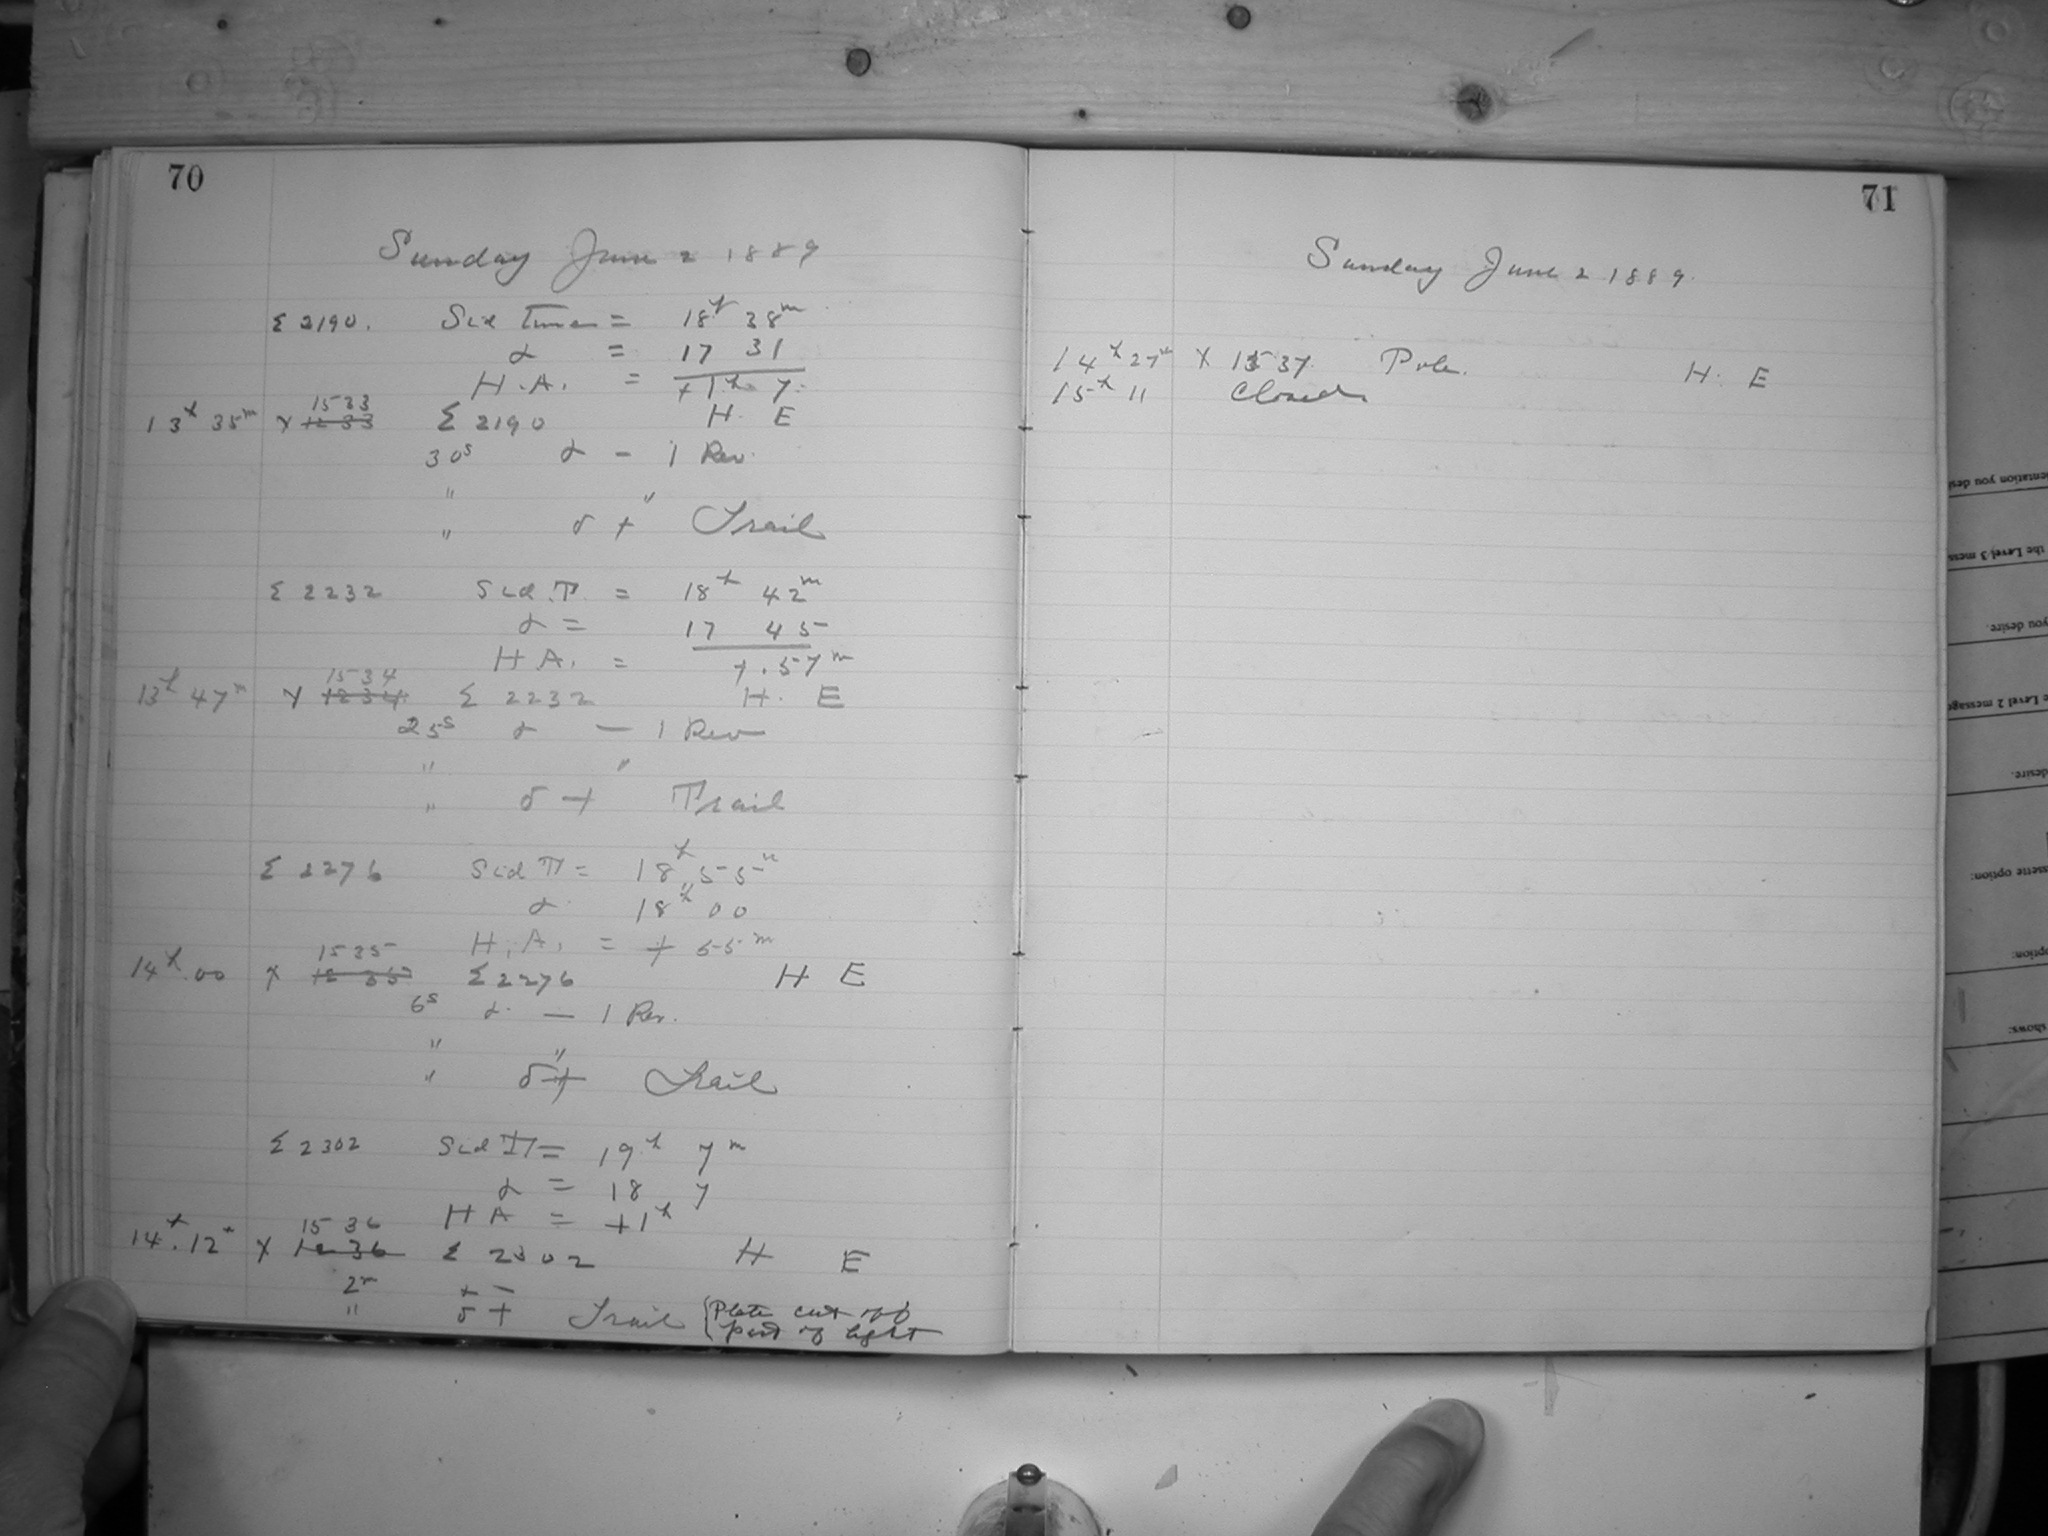 70
Sunday June 2 1889
Σ 2190. Sid Time = 18h 38m
α = 17 31
H.A. = +1h 7.
1533
13h 35m X 1233 Σ 2190 H. E
30s α - 1 Rev.
" "
" δ + Trail
Σ 2232 Sid. T. = 18h 42m
α = 17 45
H A. = +.57m
1534
13h 47m X 1234 Σ 2232 H. E
25s α - 1 Rev
" "
" δ + Trail
Σ 2276 Sid T = 18h 55m
α 18h 00
H.A. = + 55m
1535
14h.00 X 1235 Σ 2276 H E
6s α - 1 Rev.
" "
" δ + Trail
Σ 2302 Sid T = 19h 7m
α = 18 7
H A = +1h
1536
14h.12m X 1236 Σ 2302 H E
2m + -
" δ + Trail {Plate cut off
part of light
71
Sunday June 2 1889.
14h 27m X 1537 Pole. H. E
15h 11 Closed
entation you desi
the Level 3 mess
you desire.
e Level 2 message
desire.
ssette option:
option:
shows: